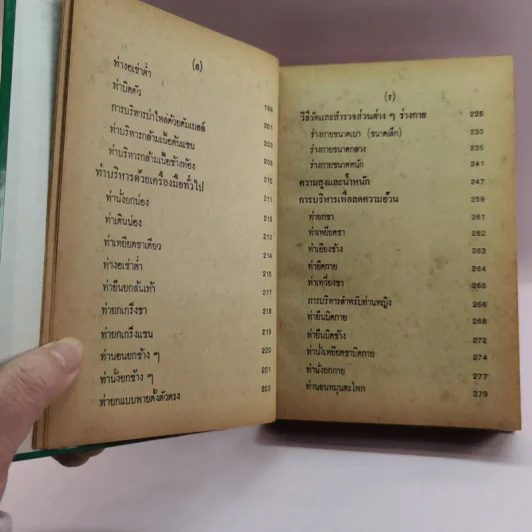 (๖)
ท่างอเข่าต่ำ
ท่าบิดตัว 198
การบริหารบ่าไหล่ด้วยดัมเบลล์ 201
ท่าบริหารกล้ามเนื้อต้นแขน 203
ท่าบริหารกล้ามเนื้อข้างท้อง 209
ท่าบริหารด้วยเครื่องมือทั่วไป 210
ท่านั่งยกน่อง 211
ท่าเดินน่อง 213
ท่าเหยียดขาเดียว 213
ท่างอเข่าต่ำ 214
ท่ายืนยกส้นเท้า 217
ท่ายกเกร็งขา 218
ท่ายกเกร็งแขน 219
ท่านอนยกข้าง ๆ 220
ท่านั่งยกข้าง ๆ 221
ท่ายกแบบพายตั้งตัวตรง 223
(๗)
วิธีวัดและสำรวจส่วนต่าง ๆ ร่างกาย 225
ร่างกายขนาดเบา (ขนาดเล็ก) 230
ร่างกายขนาดกลาง 235
ร่างกายขนาดหนัก 241
ความสูงและน้ำหนัก 247
การบริหารเพื่อลดความอ้วน 259
ท่ายกขา 261
ท่าเหยียดขา 262
ท่าเอียงข้าง 263
ท่ายืดกาย 264
ท่าเหวี่ยงขา 265
การบริหารสำหรับท่านหญิง 266
ท่ายืนบิดกาย 268
ท่ายืนบิดข้าง 272
ท่านั่งเหยียดขาบิดกาย 274
ท่านั่งยกกาย 277
ท่านอนหมุนตะโพก 279